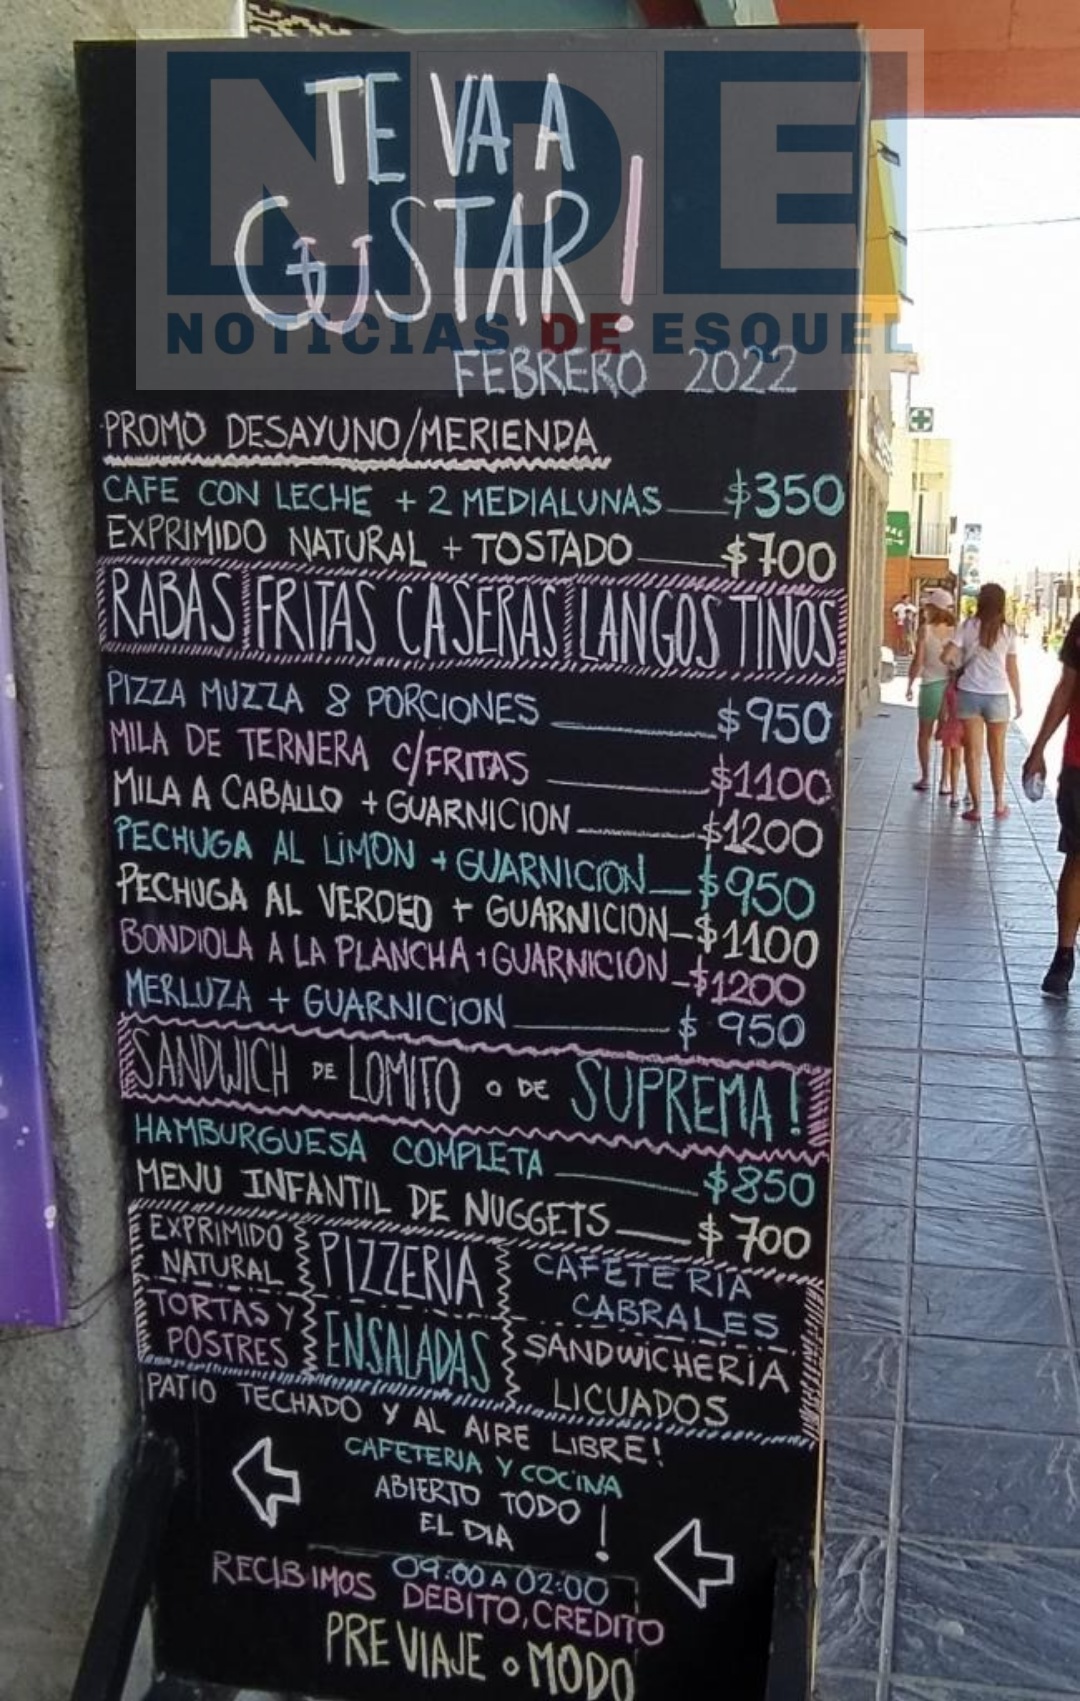 TE VA A
GUSTAR!
NDE
NOTICIAS DE ESQUEL
FEBRERO 2022
PROMO DESAYUNO/MERIENDA
CAFE CON LECHE + 2 MEDIALUNAS $350
EXPRIMIDO NATURAL + TOSTADO $700
RABAS FRITAS CASERAS LANGOSTINOS
PIZZA MUZZA 8 PORCIONES $950
MILA DE TERNERA C/FRITAS $1100
MILA A CABALLO + GUARNICION $1200
PECHUGA AL LIMON + GUARNICION $950
PECHUGA AL VERDEO + GUARNICION $1100
BONDIOLA A LA PLANCHA + GUARNICION $1200
MERLUZA + GUARNICION $950
SANDWICH DE LOMITO O DE SUPREMA!
HAMBURGUESA COMPLETA $850
MENU INFANTIL DE NUGGETS $700
EXPRIMIDO
NATURAL
PIZZERIA
CAFETERIA
CABRALES
TORTAS Y
POSTRES
ENSALADAS
SANDWICHERIA
LICUADOS
PATIO TECHADO Y AL AIRE LIBRE!
CAFETERIA Y COCINA
ABIERTO TODO
EL DIA!
09:00 A 02:00
RECIBIMOS DEBITO, CREDITO
PREVIAJE O MODO